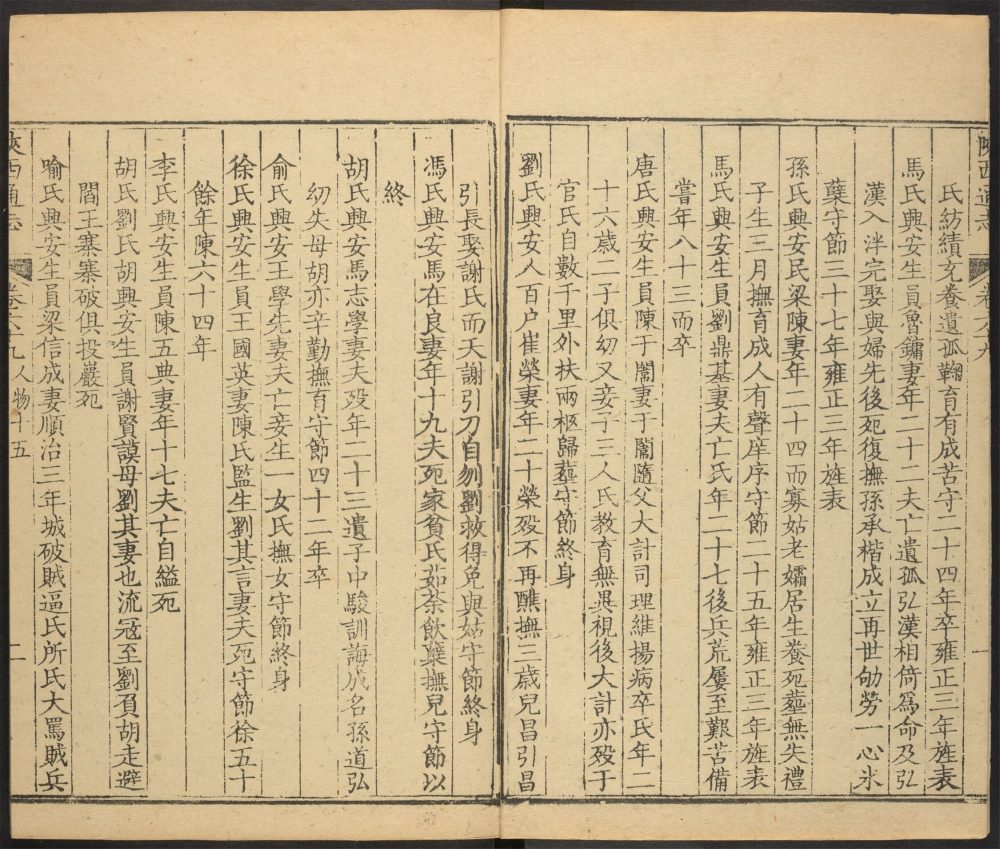 陝西通志 卷六十九 一
氏紡績充養遺孤鞠育有成苦守二十四年卒雍正三年旌表
馬氏興安生員魯鏞妻年二十二夫亡遺孤弘漢相倚爲命及弘
漢入泮完娶與婦先後死復撫孫承楷成立再世劬勞一心氷
蘗守節三十七年雍正三年旌表
孫氏興安民梁陳妻年二十四而寡姑老孀居生養死葬無失禮
子生三月撫育成人有聲庠序守節二十五年雍正三年旌表
馬氏興安生員劉鼎基妻夫亡氏年二十七後兵荒屢至艱苦備
嘗年八十三而卒
唐氏興安生員陳于闇妻于闇隨父大計司理維揚病卒氏年二
十六歲二子俱幼又妾子三人氏教育無異視後大計亦歿于
官氏自數千里外扶兩柩歸葬守節終身
劉氏興安人百户崔榮妻年二十榮歿不再醮撫三歲兒昌引昌
引長娶謝氏而夭謝引刀自刎劉救得免與姑守節終身
馮氏興安馬在良妻年十九夫死家貧氏茹荼飲蘗撫兒守節以
終
胡氏興安馬志學妻夫歿年二十三遺子中駿訓誨成名孫道弘
幼失母胡亦辛勤撫育守節四十二年卒
俞氏興安王學先妻夫亡妾生一女氏撫女守節終身
徐氏興安生員王國英妻陳氏監生劉其言妻夫死守節徐五十
餘年陳六十四年
李氏興安生員陳五典妻年十七夫亡自縊死
胡氏劉氏胡興安生員謝賢謨母劉其妻也流冦至劉負胡走避
閻王寨寨破俱投巖死
喻氏興安生員梁信成妻順治三年城破賊逼氏所氏大罵賊兵
陝西通志 卷六十九人物十五 二